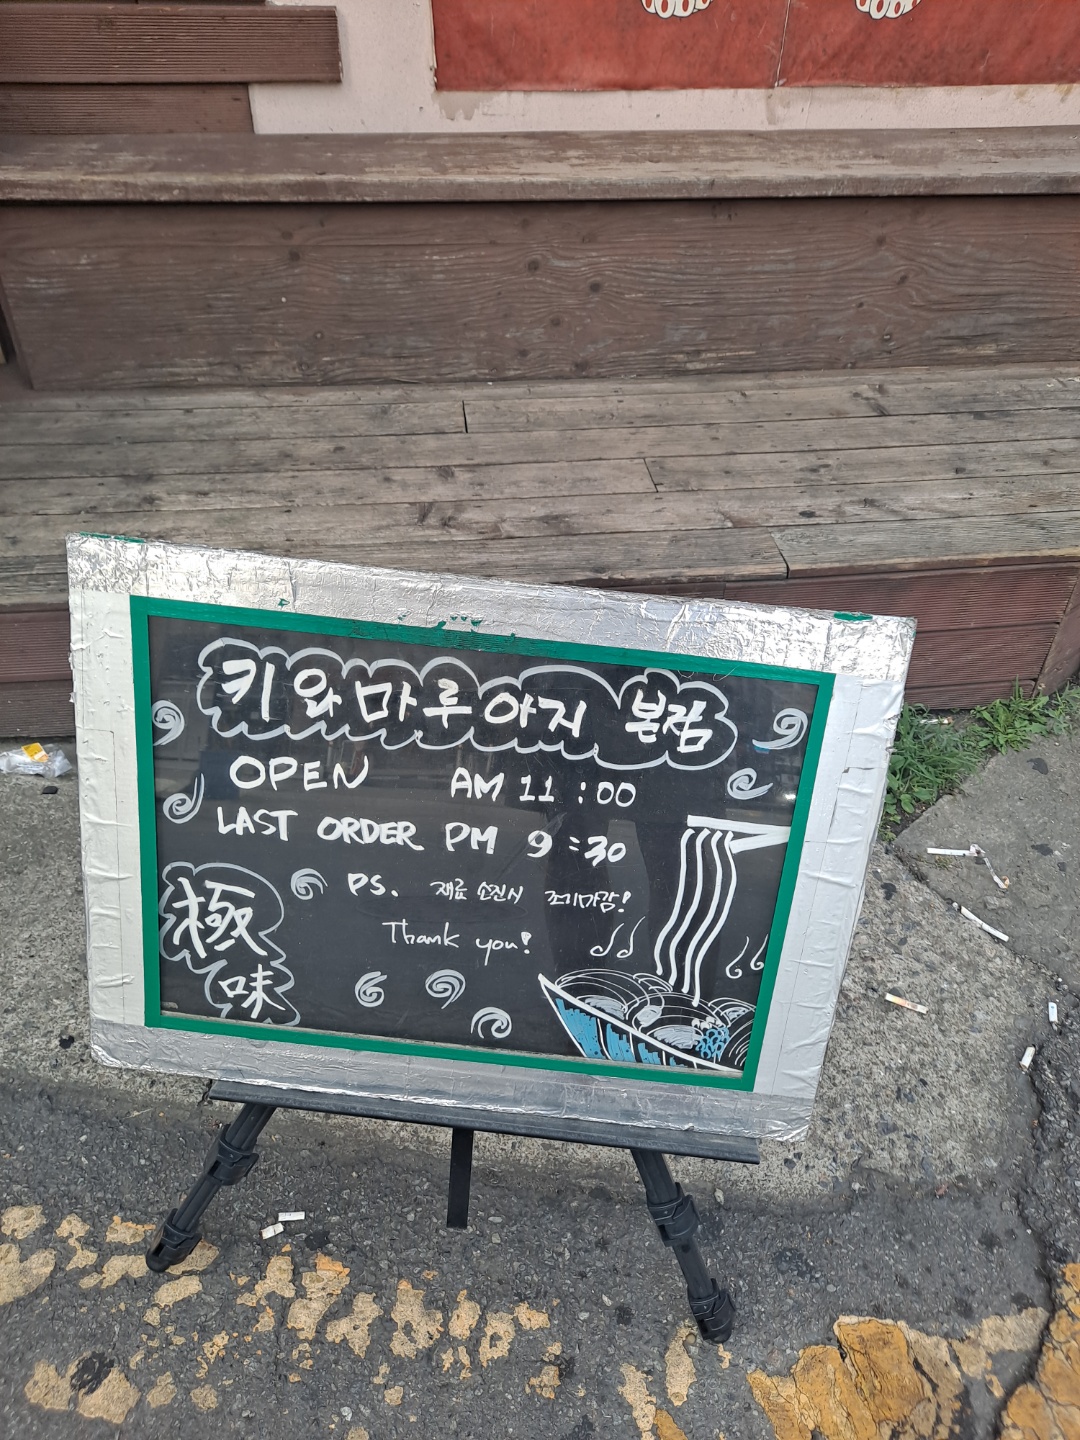 키와마루아지 본점
OPEN AM 11:00
LAST ORDER PM 9:30
P.S. 재료 소진시 조기마감!
Thank you!
極
味